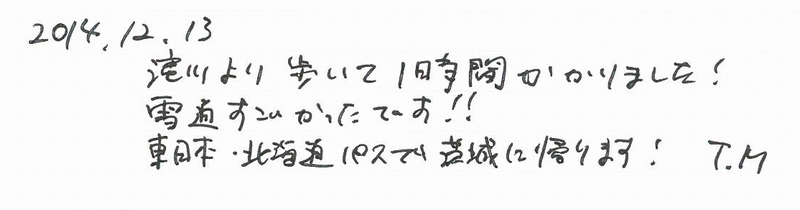 2014.12.13
滝川より歩いて1時間かかりました!
雪道すごかったです!!
東日本・北海道パスで茨城に帰ります! T.M